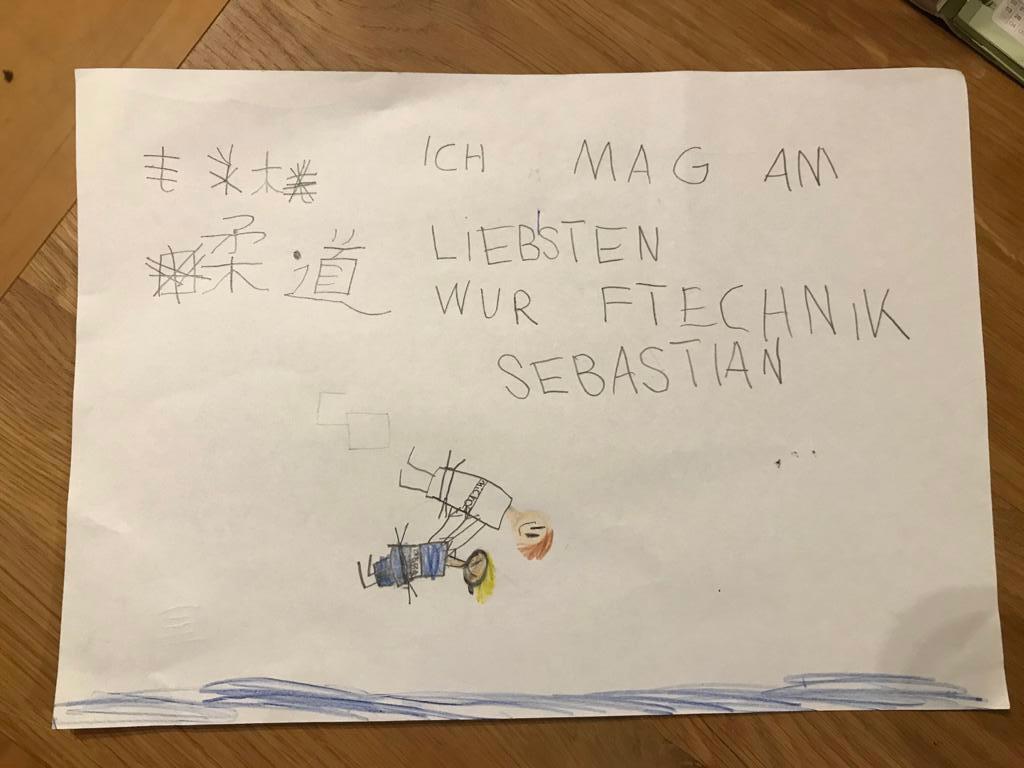 柔道
ICH MAG AM
LIEBSTEN
WUR FTECHNIK
SEBASTIAN